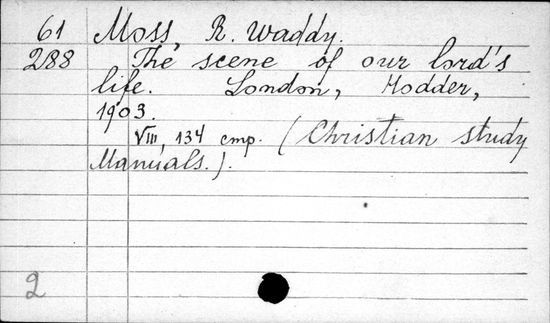 61 Moss, R. Waddy.
288 The scene of our lord's
life. London, Hodder,
1903.
VIII, 134 cmp. (Christian study
Manuals.).
2